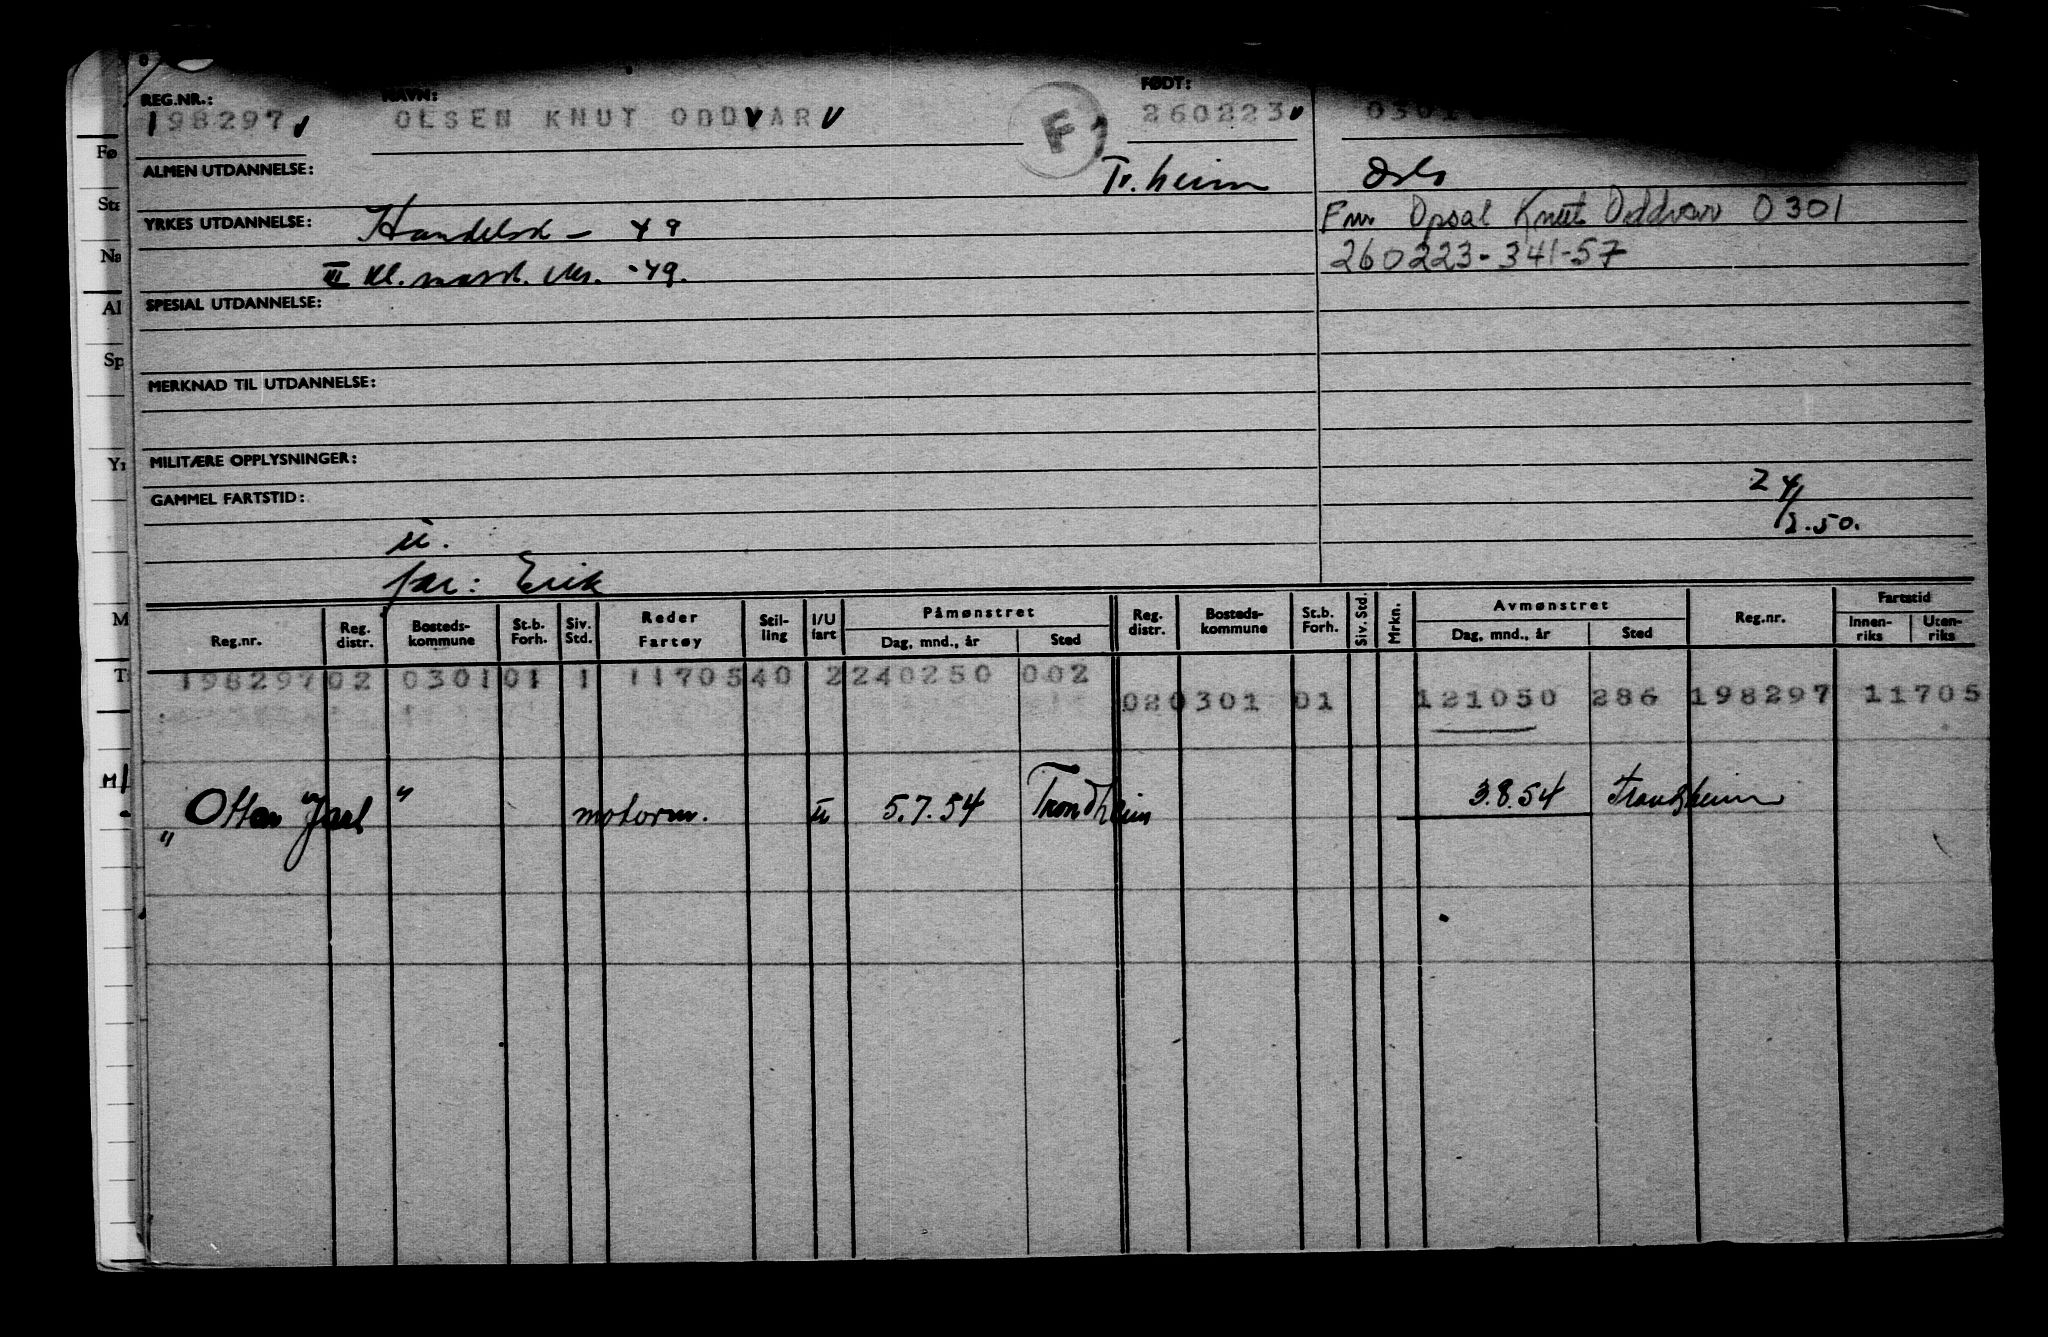 REG.NR.: NAVN: FØDT:
198297 OLSEN KNUT ODDVAR F 260223 0301
ALMEN UTDANNELSE: Tr.heim Oslo
YRKES UTDANNELSE: Handelssk - 49 Fnr Opsal Knut Oddvar 0301
III kl. mask. eks. - 49. 260223-341-57
SPESIAL UTDANNELSE:
MERKNAD TIL UTDANNELSE:
MILITÆRE OPPLYSNINGER:
GAMMEL FARTSTID: 24/2.50.
u.
far: Erik
Reg.nr. Reg. distr. Bosteds-kommune St.b. Forh. Siv. Std. Reder Fartøy Stil-ling I/U fart Påmønstret Dag, mnd., år Sted Reg. distr. Bosteds-kommune St.b. Forh. Siv. Std. Mrkn. Avmønstret Dag, mnd., år Sted Reg.nr. Fartstid Innen-riks Uten-riks
198297 02 0301 01 1 11705 40 2 240250 002
02 0301 01 121050 286 198297 11705
"Otto Jarl" motorm. u 5.7.54 Trondheim 3.8.54 Trondheim
Fø
Sta
Na
Al
Sp
Yr
M
T
M